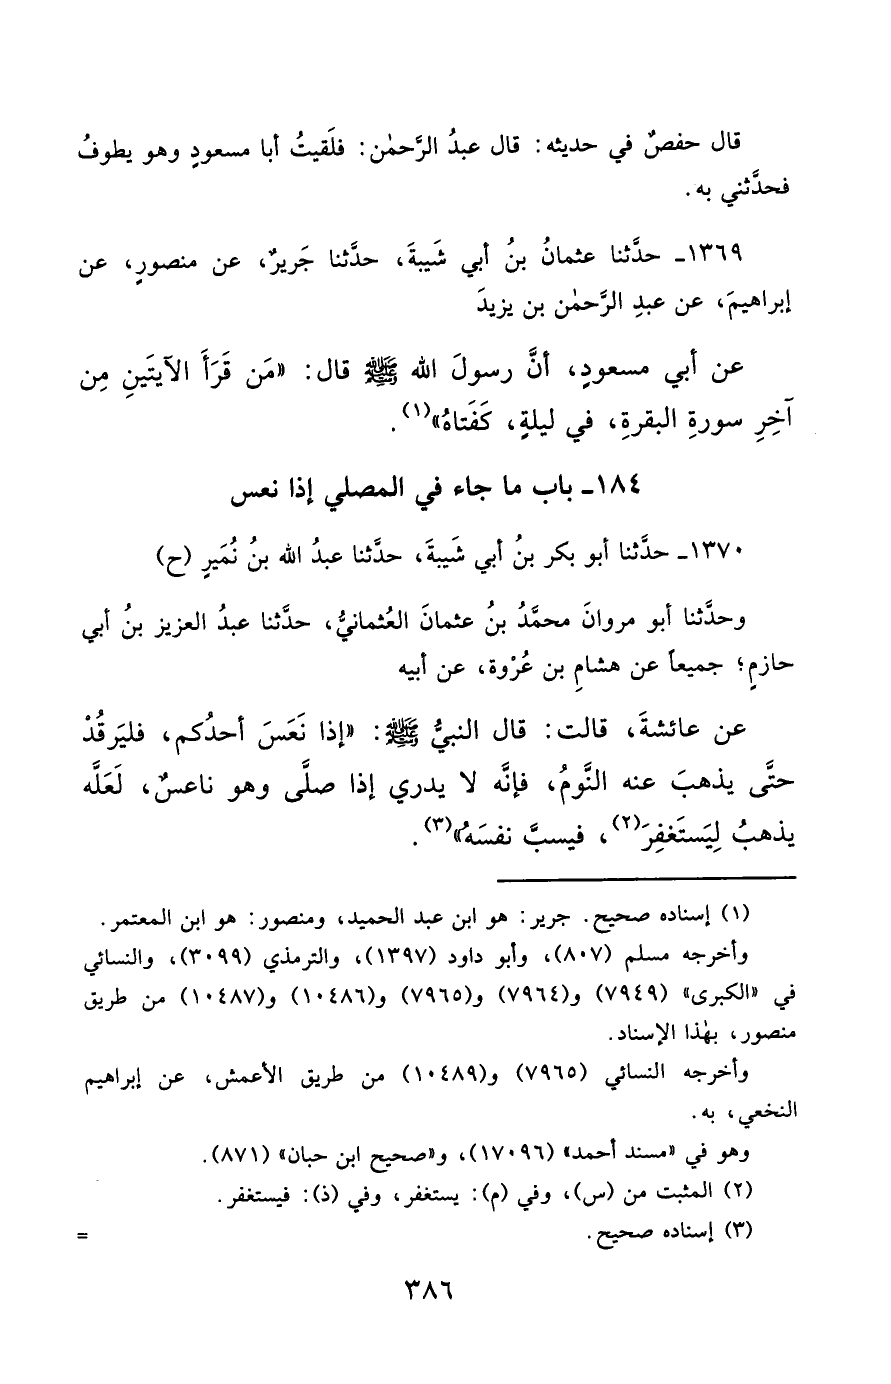 قال حفصٌ في حديثه: قال عبدُ الرَّحمٰن: فلَقيتُ أبا مسعودٍ وهو يطوفُ
فحدَّثني به.
١٣٦٩ـ حدَّثنا عثمانُ بنُ أبي شَيبةَ، حدَّثنا جَريرٌ، عن منصورٍ، عن
إبراهيمَ، عن عبدِ الرَّحمٰن بن يزيدَ
عن أبي مسعودٍ، أنَّ رسولَ الله ﷺ قال: «مَن قَرَأَ الآيتَينِ مِن
آخِرِ سورةِ البقرةِ، في ليلةٍ، كَفَتاهُ»(١).
١٨٤ـ باب ما جاء في المصلي إذا نعس
١٣٧٠ـ حدَّثنا أبو بكر بنُ أبي شَيبةَ، حدَّثنا عبدُ الله بنُ نُمَيرٍ (ح)
وحدَّثنا أبو مروانَ محمَّدُ بنُ عثمانَ العُثمانيُّ، حدَّثنا عبدُ العزيز بنُ أبي
حازمٍ؛ جميعاً عن هشامِ بن عُرْوة، عن أبيه
عن عائشةَ، قالت: قال النبيُّ ﷺ: «إذا نَعَسَ أحدُكم، فليَرقُدْ
حتَّى يذهبَ عنه النَّومُ، فإنَّه لا يدري إذا صلَّى وهو ناعسٌ، لَعَلَّه
يذهبُ لِيَستَغفِرَ(٢)، فيسبَّ نفسَهُ»(٣).
(١) إسناده صحيح. جرير: هو ابن عبد الحميد، ومنصور: هو ابن المعتمر.
وأخرجه مسلم (٨٠٧)، وأبو داود (١٣٩٧)، والترمذي (٣٠٩٩)، والنسائي
في «الكبرى» (٧٩٤٩) و(٧٩٦٤) و(٧٩٦٥) و(١٠٤٨٦) و(١٠٤٨٧) من طريق
منصور، بهٰذا الإسناد.
وأخرجه النسائي (٧٩٦٥) و(١٠٤٨٩) من طريق الأعمش، عن إبراهيم
النخعي، به.
وهو في «مسند أحمد» (١٧٠٩٦)، و«صحيح ابن حبان» (٨٧١).
(٢) المثبت من (س)، وفي (م): يستغفر، وفي (ذ): فيستغفر.
(٣) إسناده صحيح. =
٣٨٦